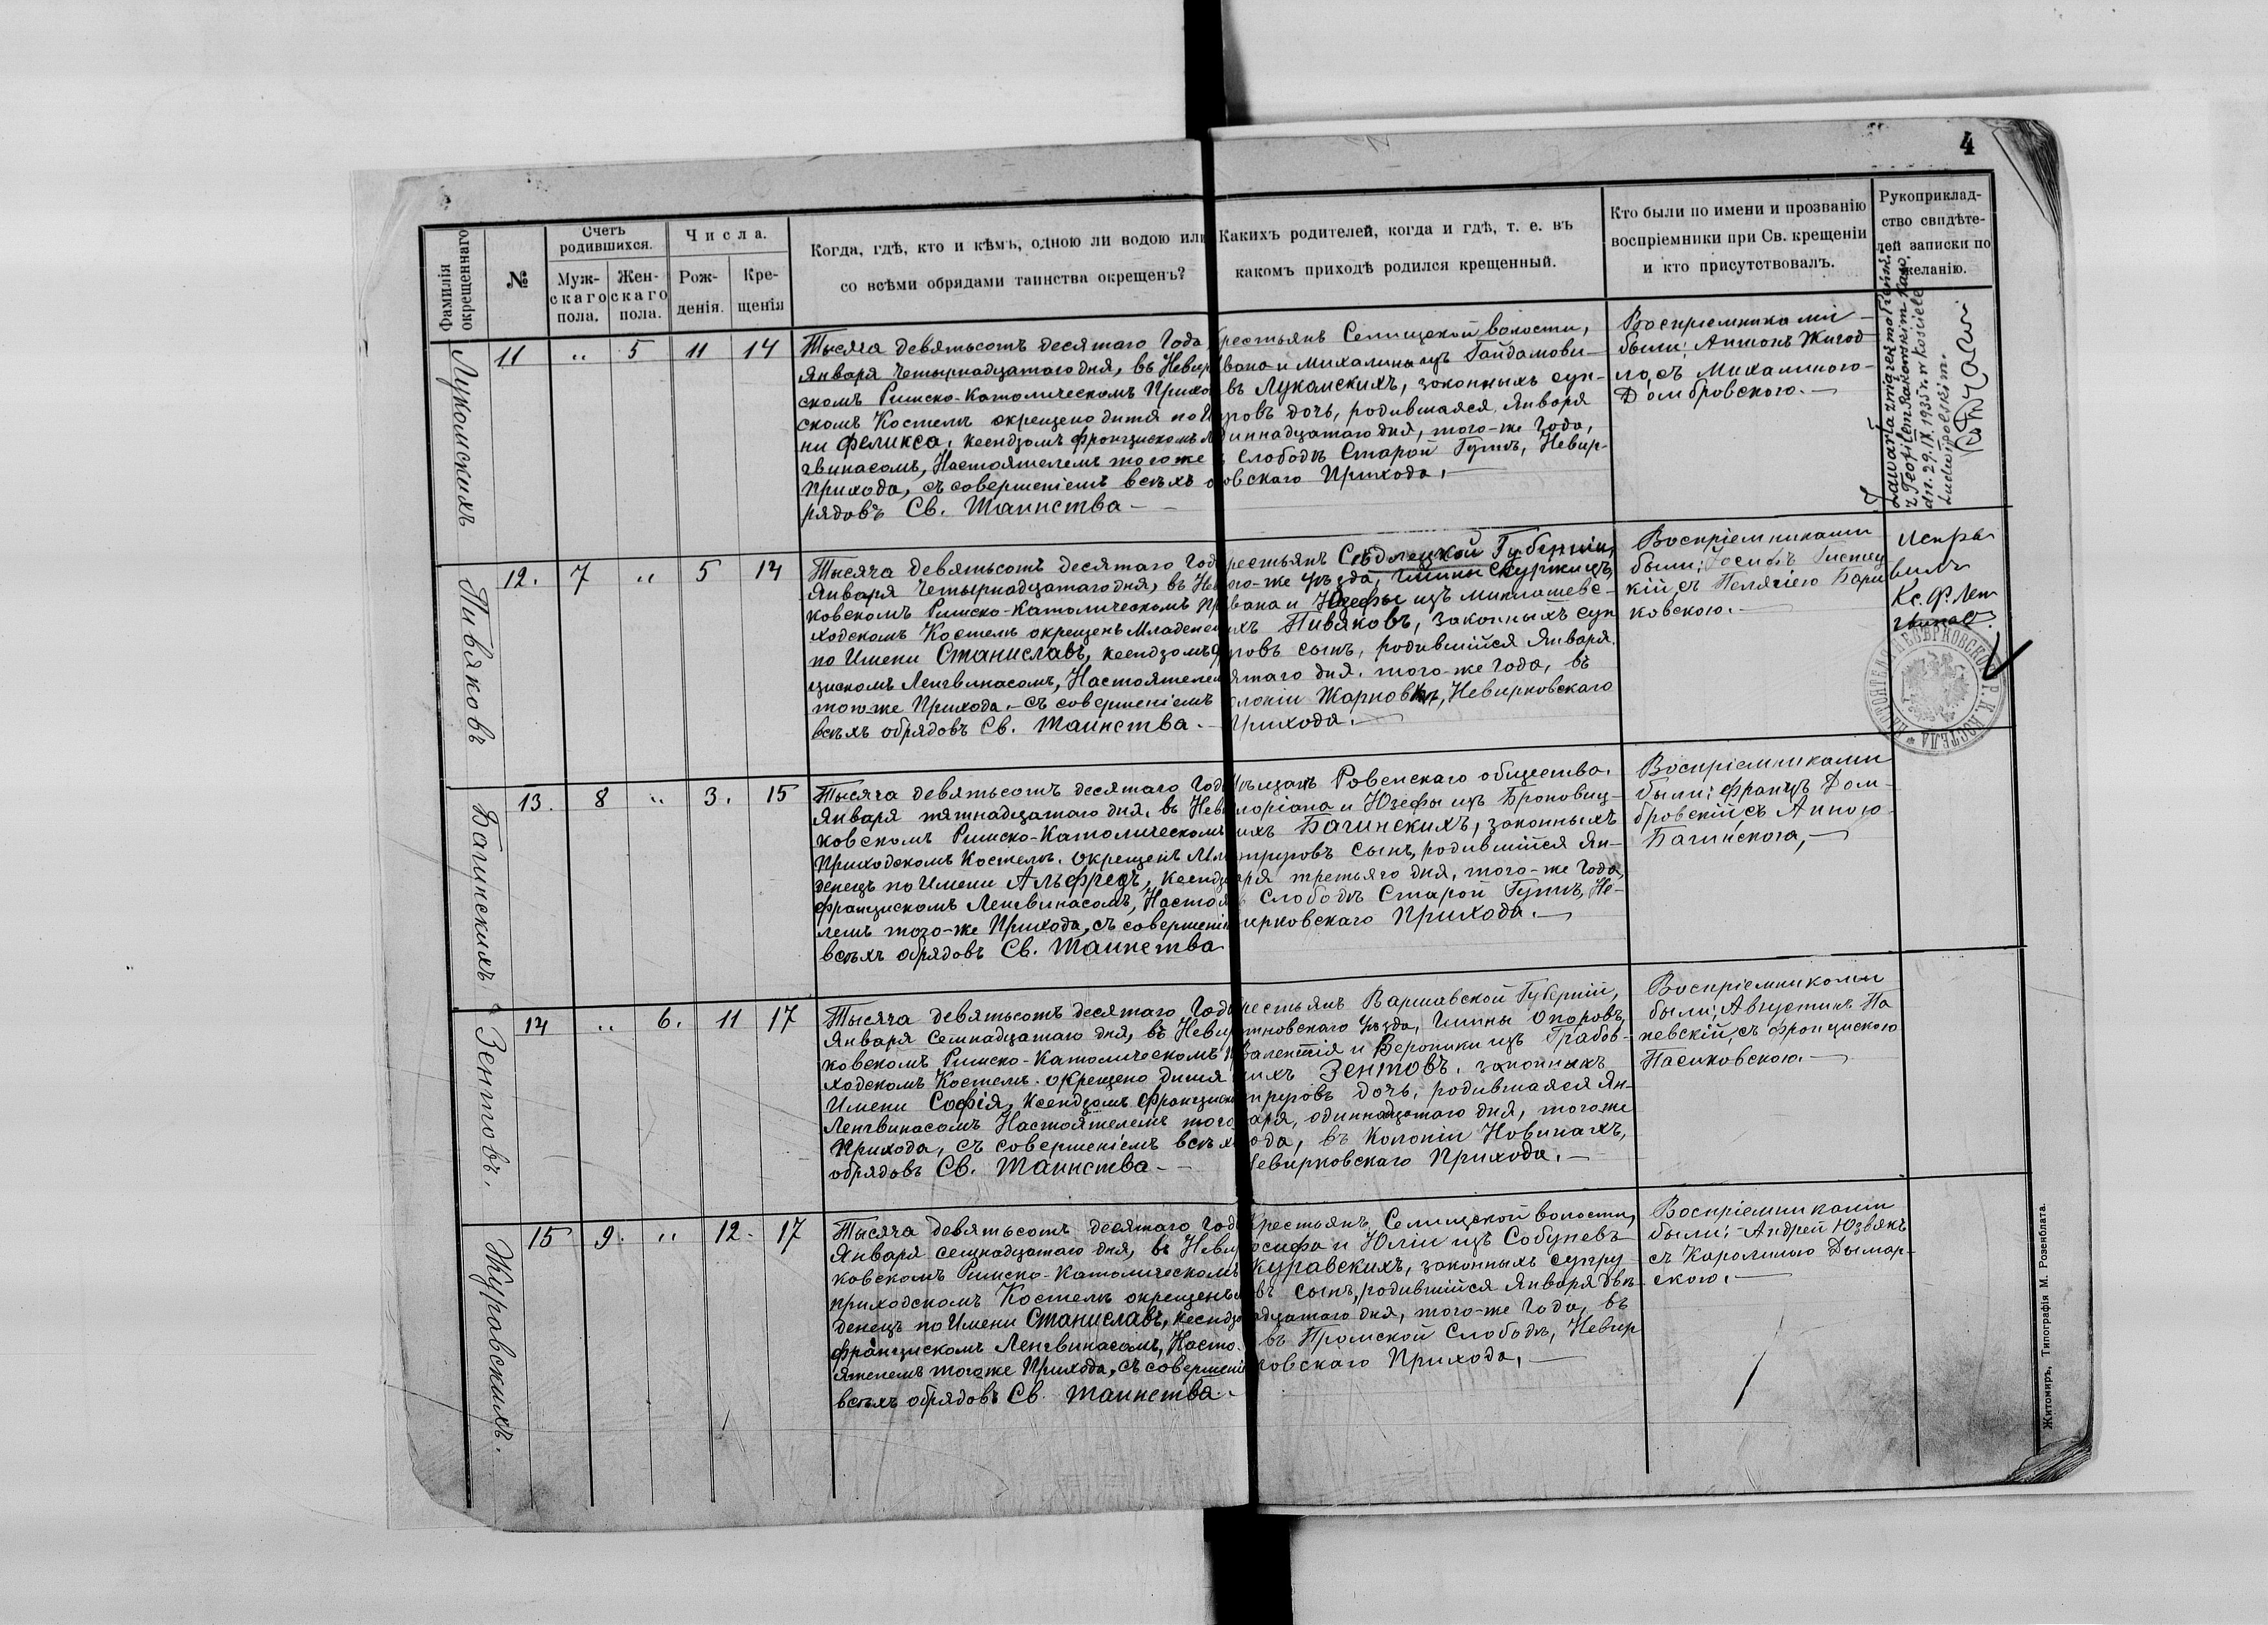 4
Фамилія окрещеннаго
№
Счетъ родившихся.
Муж-скаго пола.
Жен-скаго пола.
Числа.
Рож-денія.
Кре-щенія
Когда, гдѣ, кто и кѣмъ, одною ли водою или
со всѣми обрядами таинства окрещенъ?
Какихъ родителей, когда и гдѣ, т. е. въ
какомъ приходѣ родился крещенный.
Кто были по имени и прозванію
воспріемники при Св. крещеніи
и кто присутствовалъ.
Рукоприклад-
ство свидѣте-
лей записки по
желанію.
Лукомскихъ
11 " 5 11 14
Тысяча девятьсотъ десятаго Года
Января четырнадцатаго дня, въ Невир
скомъ Римско-Католическомъ Прихо
скомъ Костелѣ окрещено дитя по И
ни Феликса, ксендзомъ Францискомъ Л
гвинасомъ, Настоятелемъ того же
Прихода, съ совершеніемъ всѣхъ о
рядовъ Св. Таинства —
рестьянъ Селищской волости,
вана и Михалины изъ Гайдамови-
въ Лукомскихъ, законныхъ суп-
уговъ дочь, родившаяся Января
диннадцатаго дня, того-же Года,
Слободѣ Старой Гутѣ, Невир-
овскаго Прихода. —
Воспріемниками
были: Антонъ Жигод
ло, съ Михалиною
Домбровскою. —
Zawarła związek małżeński
z Teofilem Rakowskim Kaw.
dn. 29.IX.1935 r. w kościele
Ludwipolskim.
Пивяковъ
12. 7 " 5 14
Тысяча девятьсотъ десятаго Год
Января четырнадцатаго дня, въ Не
ковскомъ Римско-Католическомъ Пр
ходскомъ Костелѣ окрещенъ Младенец
по Имени Станиславъ, ксендзомъ Ф
цискомъ Ленгвинасомъ, Настоятелем
того же Прихода. — съ совершеніемъ
всѣхъ обрядовъ Св. Таинства. —
рестьянъ Сѣдлецкой Губерніи,
ого-же уѣзда, Гмины Скуржецъ,
вана и Юзефы изъ Миклашевс-
ихъ Пивяковъ, законныхъ суп
уговъ сынъ, родившійся Января
ятаго дня, того-же Года, въ
олоніи Жарновкѣ, Невирковскаго
Прихода. —
Воспріемниками
были: Госифъ
кій, съ Пелягіею Бари
ковскою. —
Испра
вилъ
Кс. Ф. Лен
гвинасъ.
НАСТОЯТЕЛЯ НЕВѢРКОВСКОГО Р. К. КОСТЕЛА
Багинскихъ
13. 8 " 3. 15
Тысяча девятьсотъ десятаго Год
Января пятнадцатаго дня, въ Нев
ковскомъ Римско-Католическомъ
Приходскомъ Костелѣ. окрещенъ Мла
денецъ по Имени Альфредъ, ксендз
Францискомъ Ленгвинасомъ, Настоя
лемъ того-же Прихода, съ совершені
всѣхъ обрядовъ Св. Таинства
ѣщанъ Ровенскаго общества.
лоріана и Юзефы изъ Броновиц-
ихъ Багинскихъ, законныхъ
пруговъ сынъ, родившійся Ян-
аря третьяго дня, того-же Года,
Слободѣ Старой Гутѣ, Не-
ирковскаго Прихода. —
Воспріемниками
были: Францъ Дом-
бровскій, съ Анною
Багинскою, —
Зентовъ.
14 " 6. 11 17
Тысяча девятьсотъ десятаго Год
Января Семнадцатаго дня, въ Невир
ковскомъ Римско-Католическомъ Пр
ходскомъ Костелѣ. окрещено дитя
Имени Софія, Ксендзомъ Франциско
Ленгвинасомъ Настоятелемъ того
Прихода, съ совершеніемъ всѣхъ
обрядовъ Св. Таинства —
рестьянъ Варшавской Губерніи,
тновскаго Уѣзда, Гмины Опоровъ,
Валентія и Вероники изъ Грабов-
ихъ Зентовъ. законныхъ
пруговъ дочь, родившаяся Ян-
аря, одиннадцатаго дня, того же
ода, въ Колоніи Новинахъ,
Невирковскаго Прихода. —
Воспріемниками
были; Августинъ Па
невскій, съ Францискою
Пасиковскою. —
Журавскихъ.
15 9. " 12. 17
Тысяча девятьсотъ десятаго Год
Января семнадцатаго дня, въ Невир
ковскомъ Римско-Католическомъ
приходскомъ Костелѣ окрещенъ
денецъ по Имени Станиславъ, ксендз
Францискомъ Ленгвинасомъ, Насто-
ятелемъ того же Прихода, съ совершені
всѣхъ обрядовъ Св. Таинства. —
Крестьянъ, Селищской волости,
осифа и Юліи изъ Собуневъ
Журавскихъ, законныхъ супру
въ сынъ, родившійся Января двѣ-
адцатаго дня, того-же Года, въ
въ Громской Слободѣ, Невир
ковскаго Прихода, —
Воспріемниками
были; Андрей Юзвякъ
съ Каролиною Дымар-
скою. —
Житомиръ, Типографія М. Розенблата.